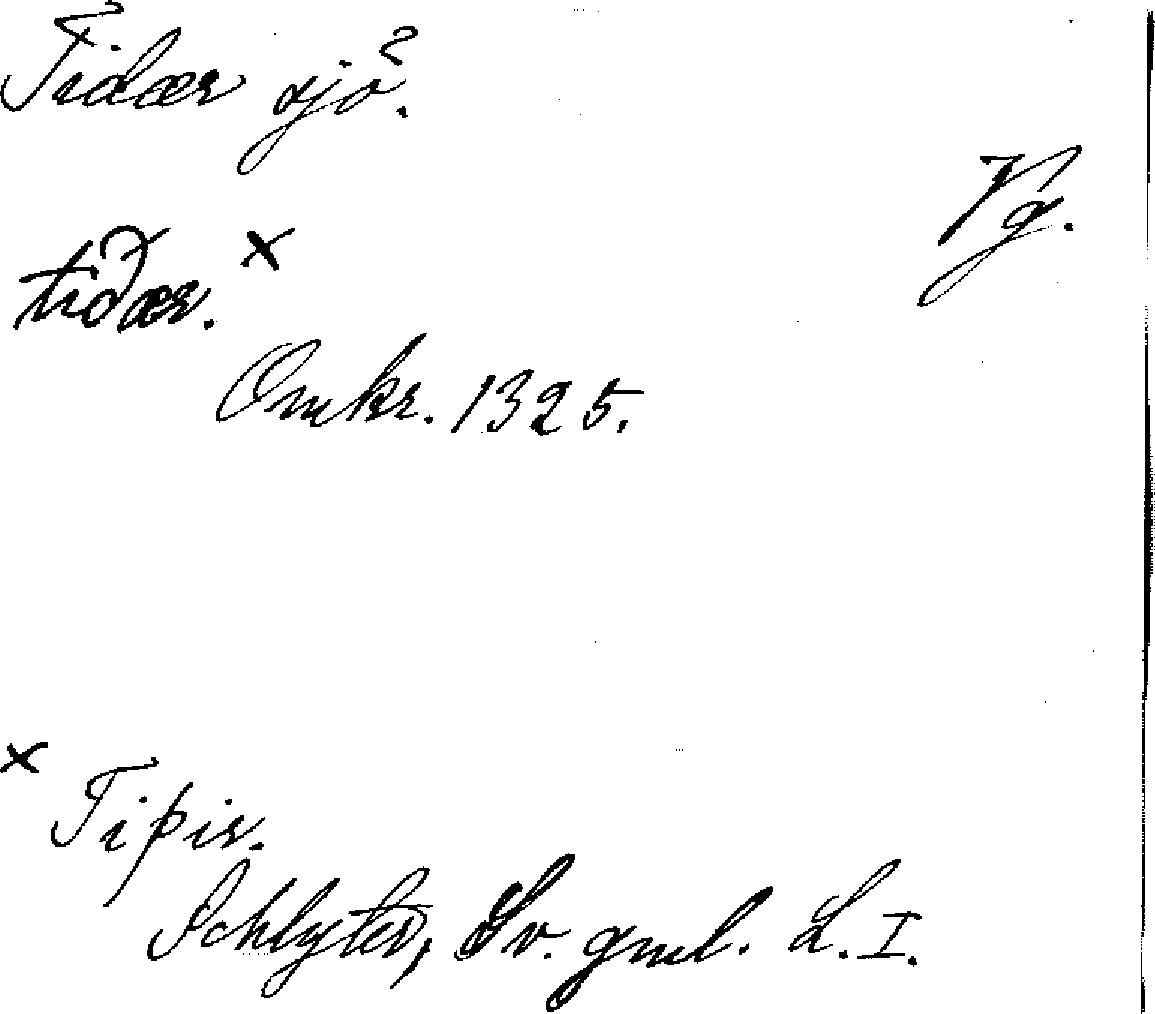 Tidær sjo?.
Vg.
tiðær. ×
Omkr. 1325.
× Tiþir.
Schlyter, Sv. gml. L. I.